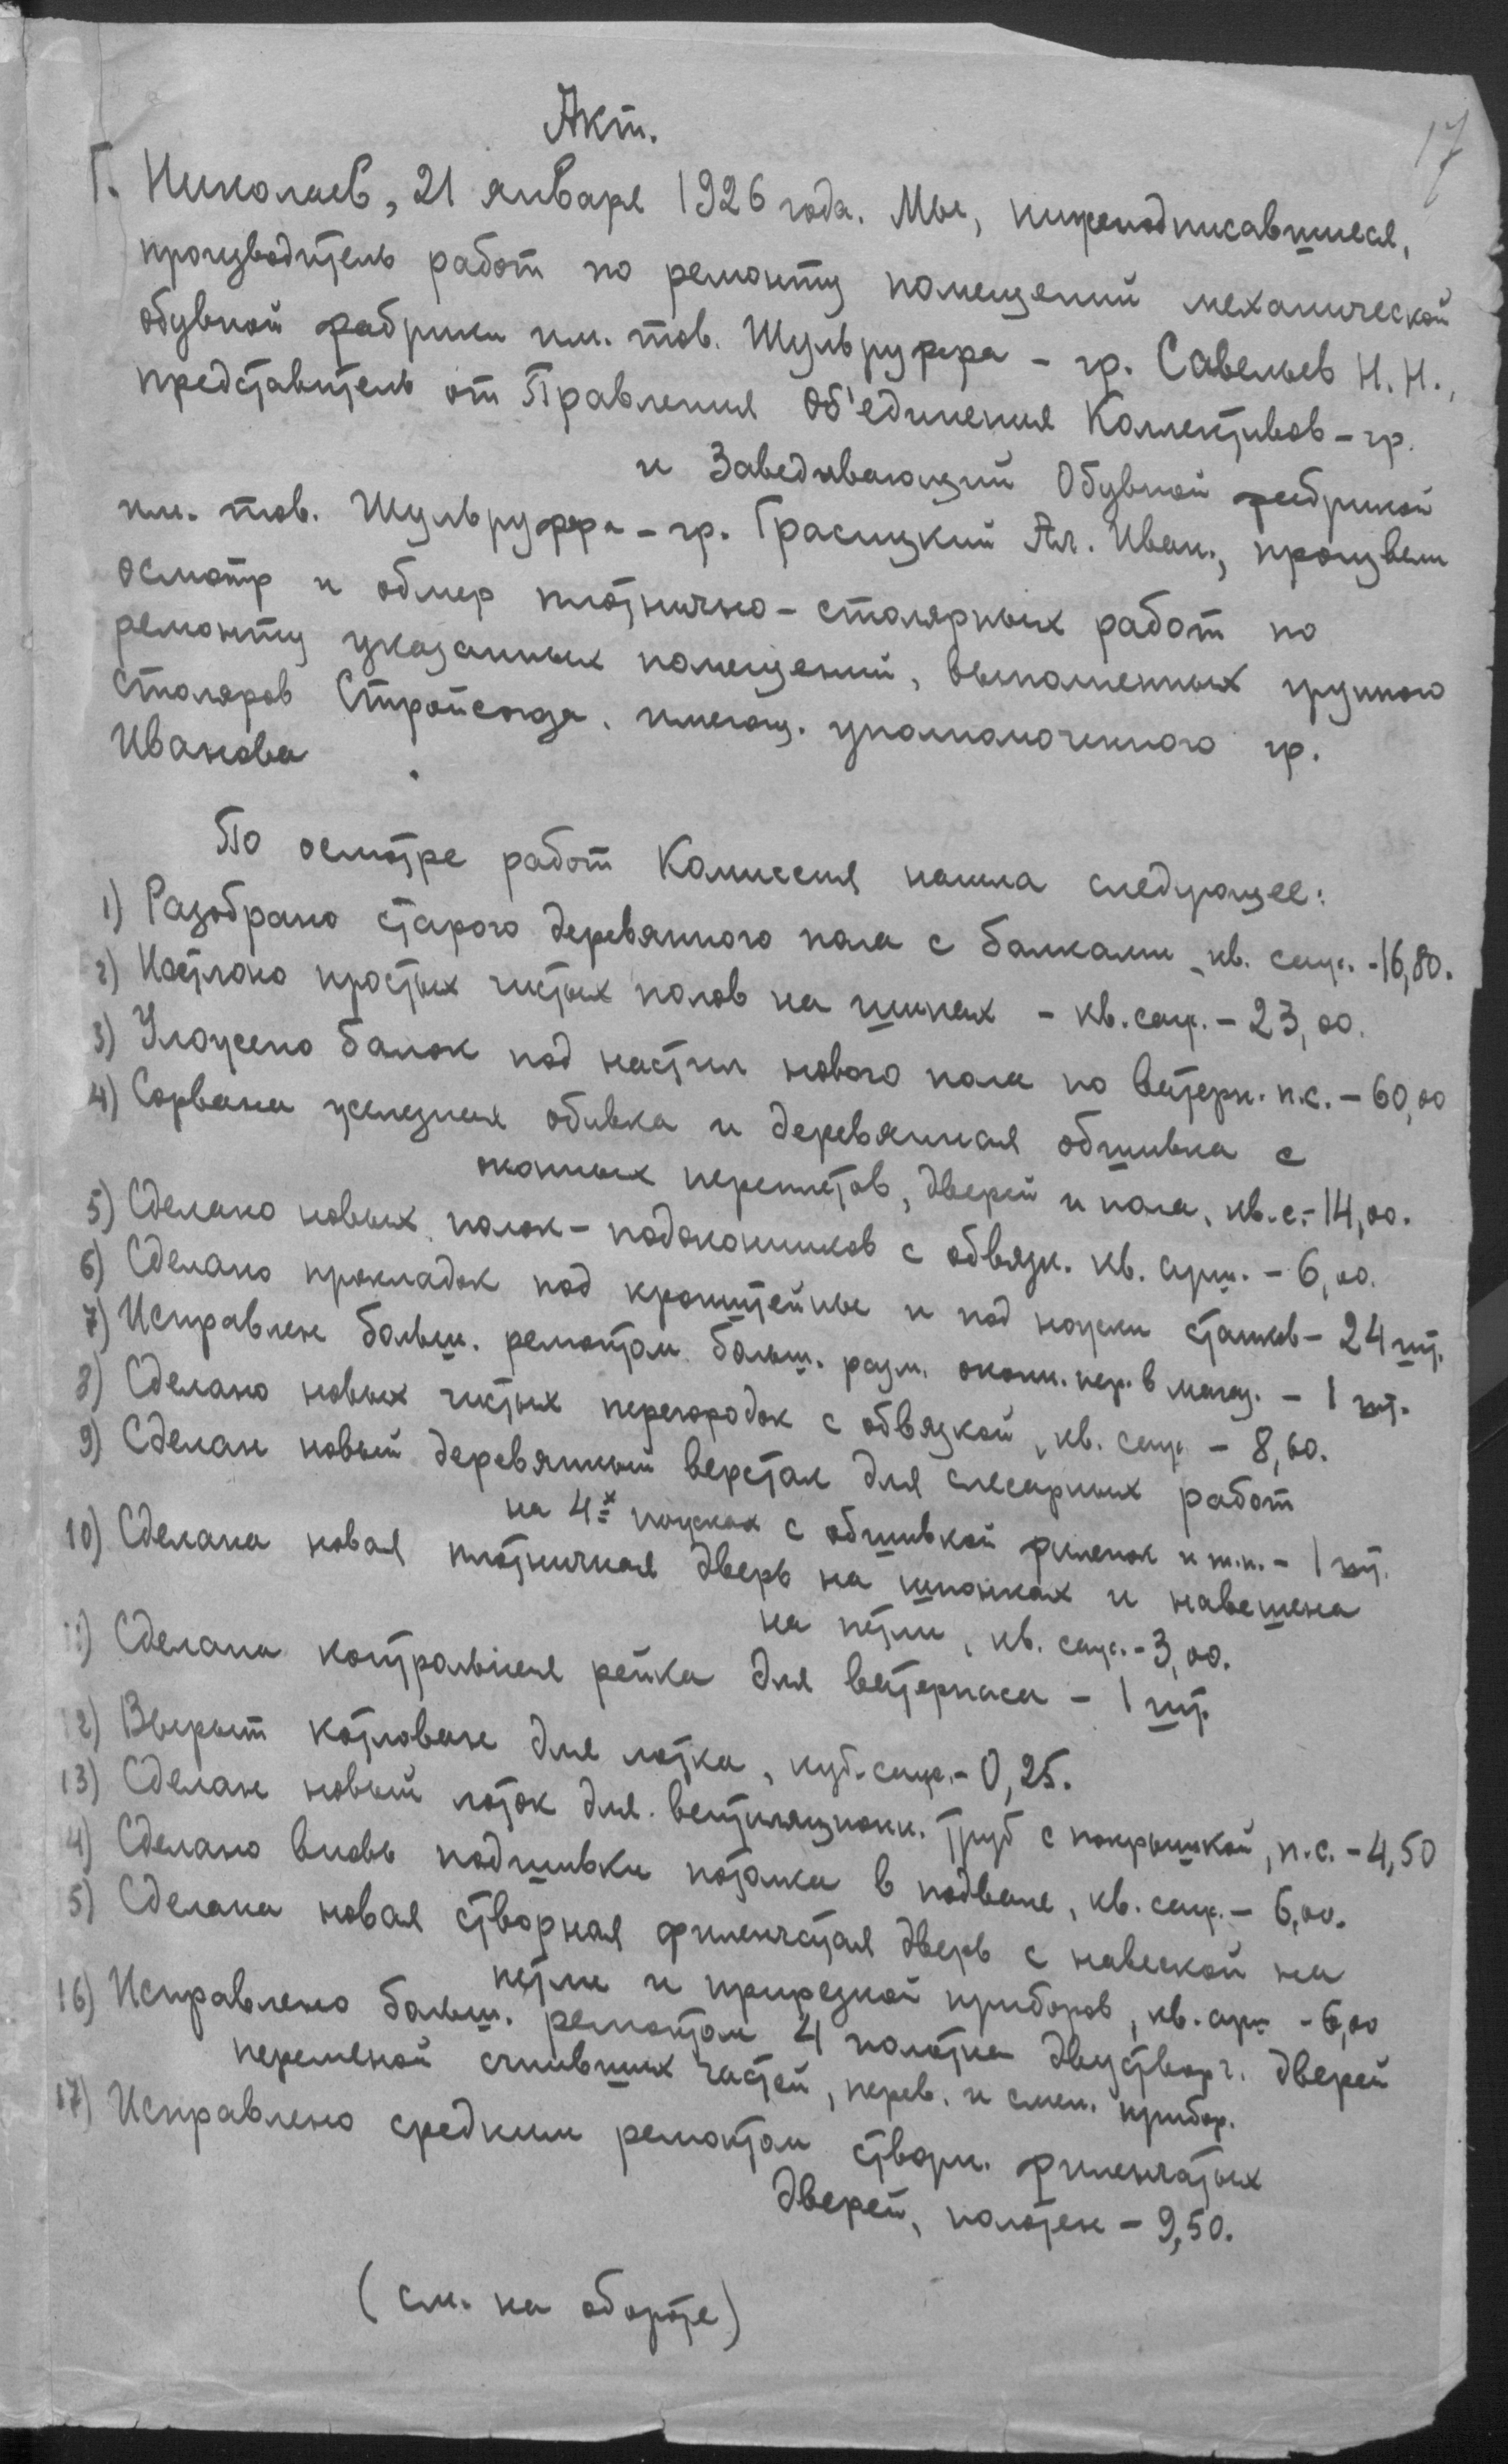 17
Акт.
Г. Николаев, 21 января 1926 года. Мы, нижеподписавшиеся,
производитель работ по ремонту помещений механической
обувной фабрики им. тов. Шульруффа – гр. Савельев Н. Н.,
представитель от Правления Об'единения Коллективов – гр.
и Заведывающий Обувной фабрикой
им. тов. Шульруффа – гр. Грасицкий Ал. Иван., произвели
осмотр и обмер плотнично-столярных работ по
ремонту указанных помещений, выполненных группою
столяров Стройсоюза, имеющ. уполномоченного гр.
Иванова .
По осмотре работ Комиссия нашла следующее:
1) Разобрано старого деревянного пола с балками, кв. саж. – 16,80.
2) Настлано простых чистых полов на шипах – кв. саж. – 23,00.
3) Уложено балок под настил нового пола по ватерп. п.с. – 60,00
4) Сорвана железная обивка и деревянная обшивка с
оконных переплетов, дверей и пола, кв. с. – 14,00.
5) Сделано новых полок-подоконников с обвязк. кв. арш. – 6,00.
6) Сделано прокладок под кронштейны и под ножки станков – 24 шт.
7) Исправлен больш. ремонтом больш. разм. оконн. пер. в магаз. – 1 шт.
8) Сделано новых чистых перегородок с обвязкой, кв. саж. – 8,60.
9) Сделан новый деревянный верстак для слесарных работ
на 4х ножках с обшивкой филенок и т.п. – 1 шт.
10) Сделана новая плотничная дверь на шпонках и навешена
на петли, кв. саж. – 3,00.
11) Сделана контрольная рейка для ватерпаса – 1 шт.
12) Вырыт котлован для лотка, куб. саж. – 0,25.
13) Сделан новый лоток для вентиляционн. труб с покрышкой, п.с. – 4,50
14) Сделано вновь подшивки потолка в подвале, кв. саж. – 6,00.
15) Сделана новая створная филенчатая дверь с навеской на
петли и прирезкой приборов, кв. арш – 6,00
16) Исправлено больш. ремонтом 4 полотна двустворч. дверей
переменой сгнивших частей, перев. и смен. прибор.
17) Исправлено средним ремонтом створн. филенчатых
дверей, полотен – 9,50.
(см. на обороте)